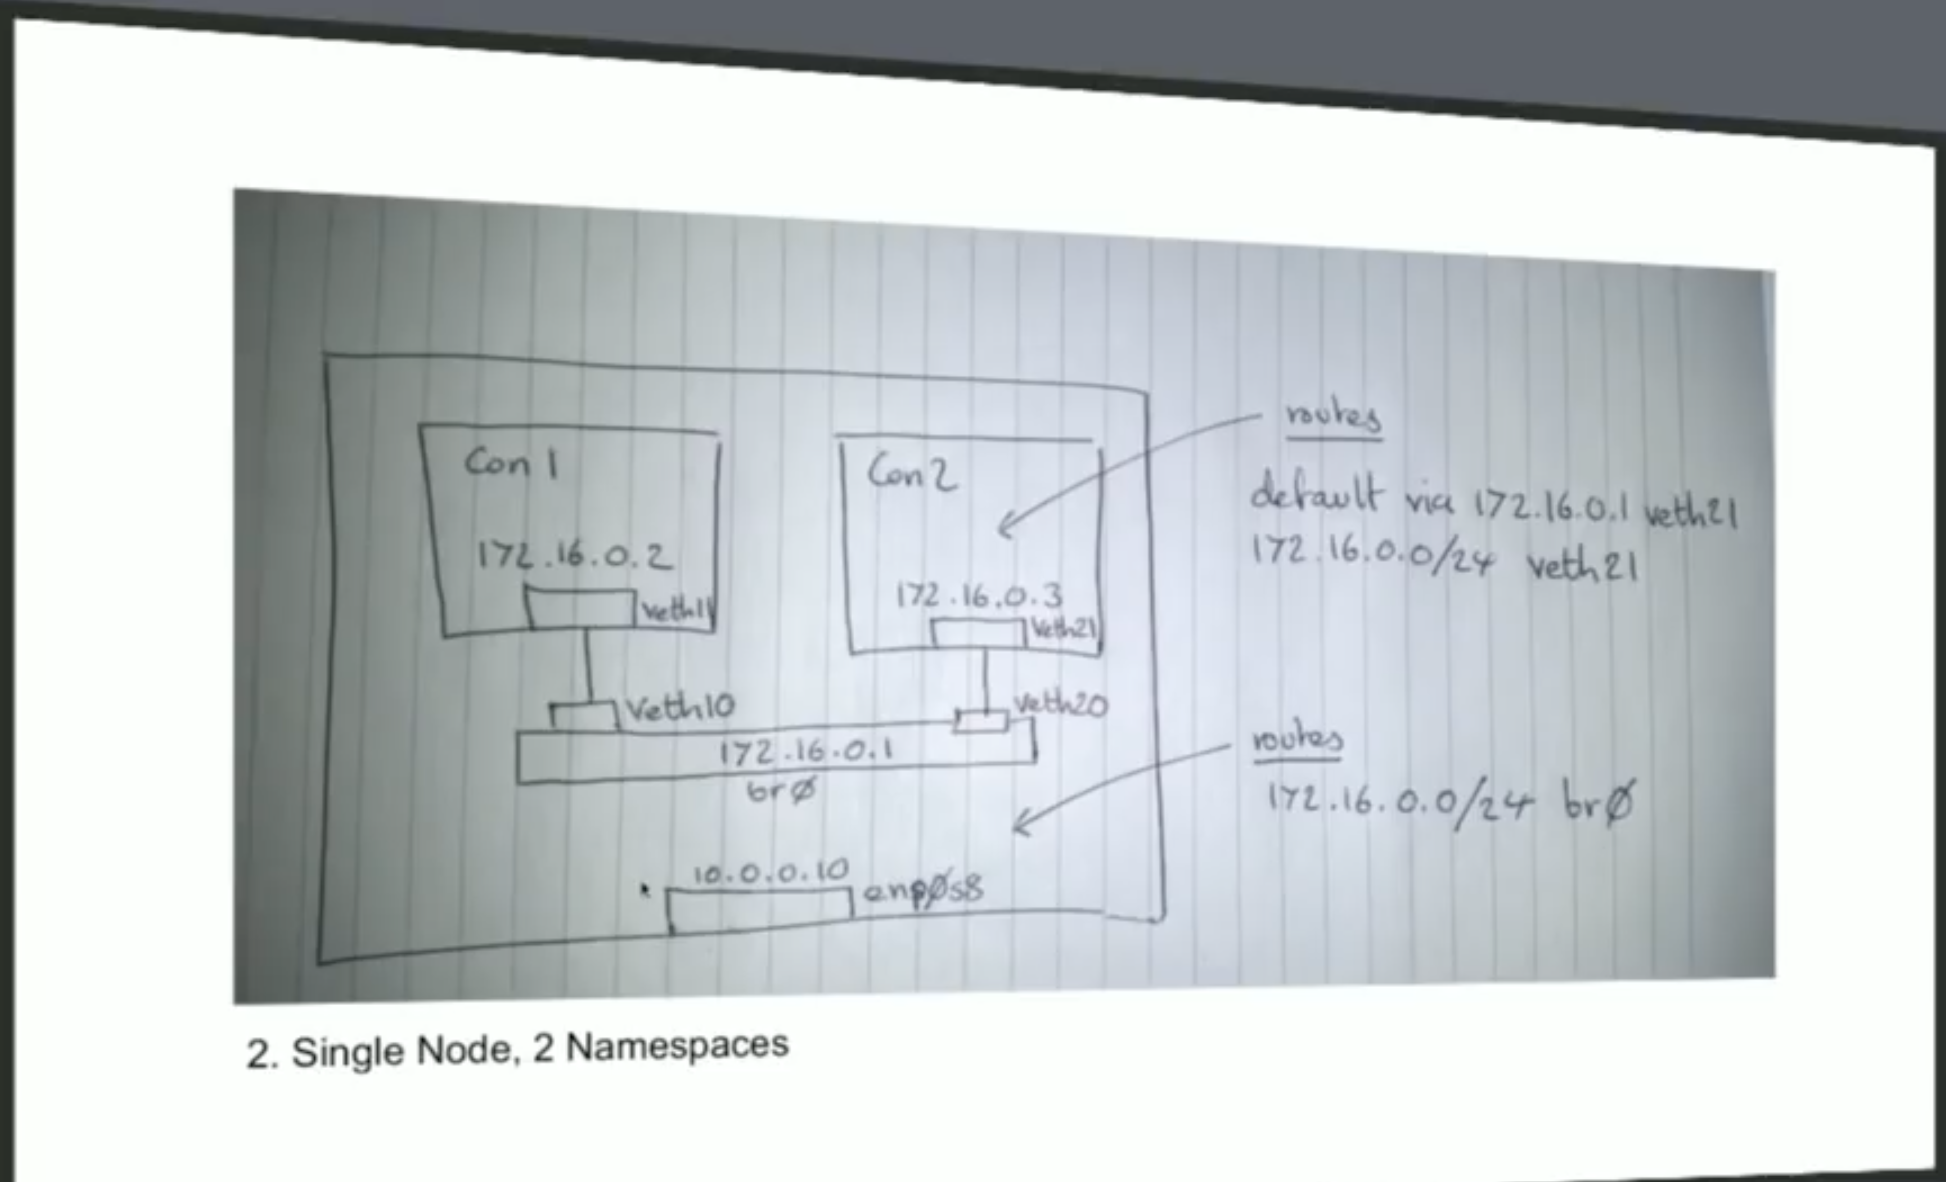 Con 1
172.16.0.2
veth11
Con 2
172.16.0.3
veth21
veth10
veth20
172.16.0.1
brø
10.0.0.10
enpøs8
routes
default via 172.16.0.1 veth21
172.16.0.0/24 veth21
routes
172.16.0.0/24 brø
2. Single Node, 2 Namespaces